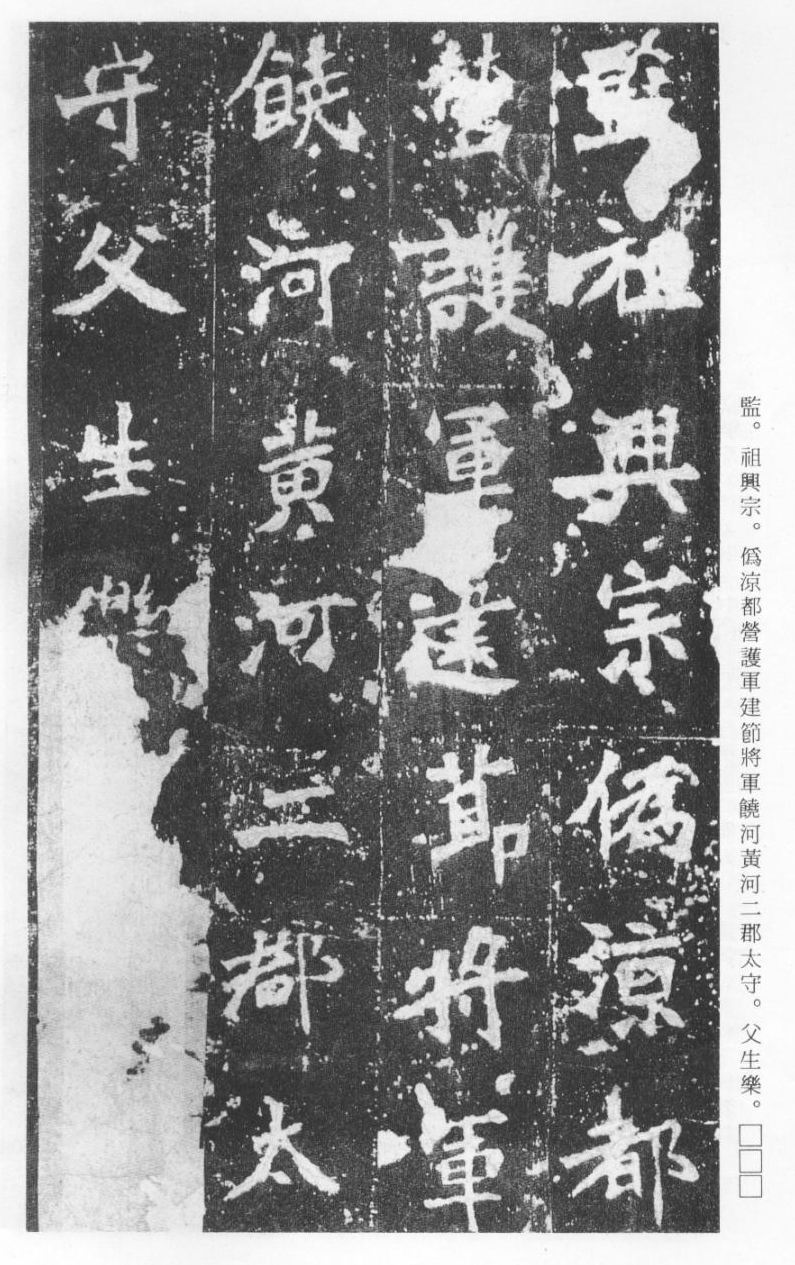 監。祖興宗。僞涼都營護軍建節將軍饒河黃河二郡太守。父生樂。□□□
監祖興宗僞涼都
營護軍建節將軍
饒河黃河二郡太
守父生樂